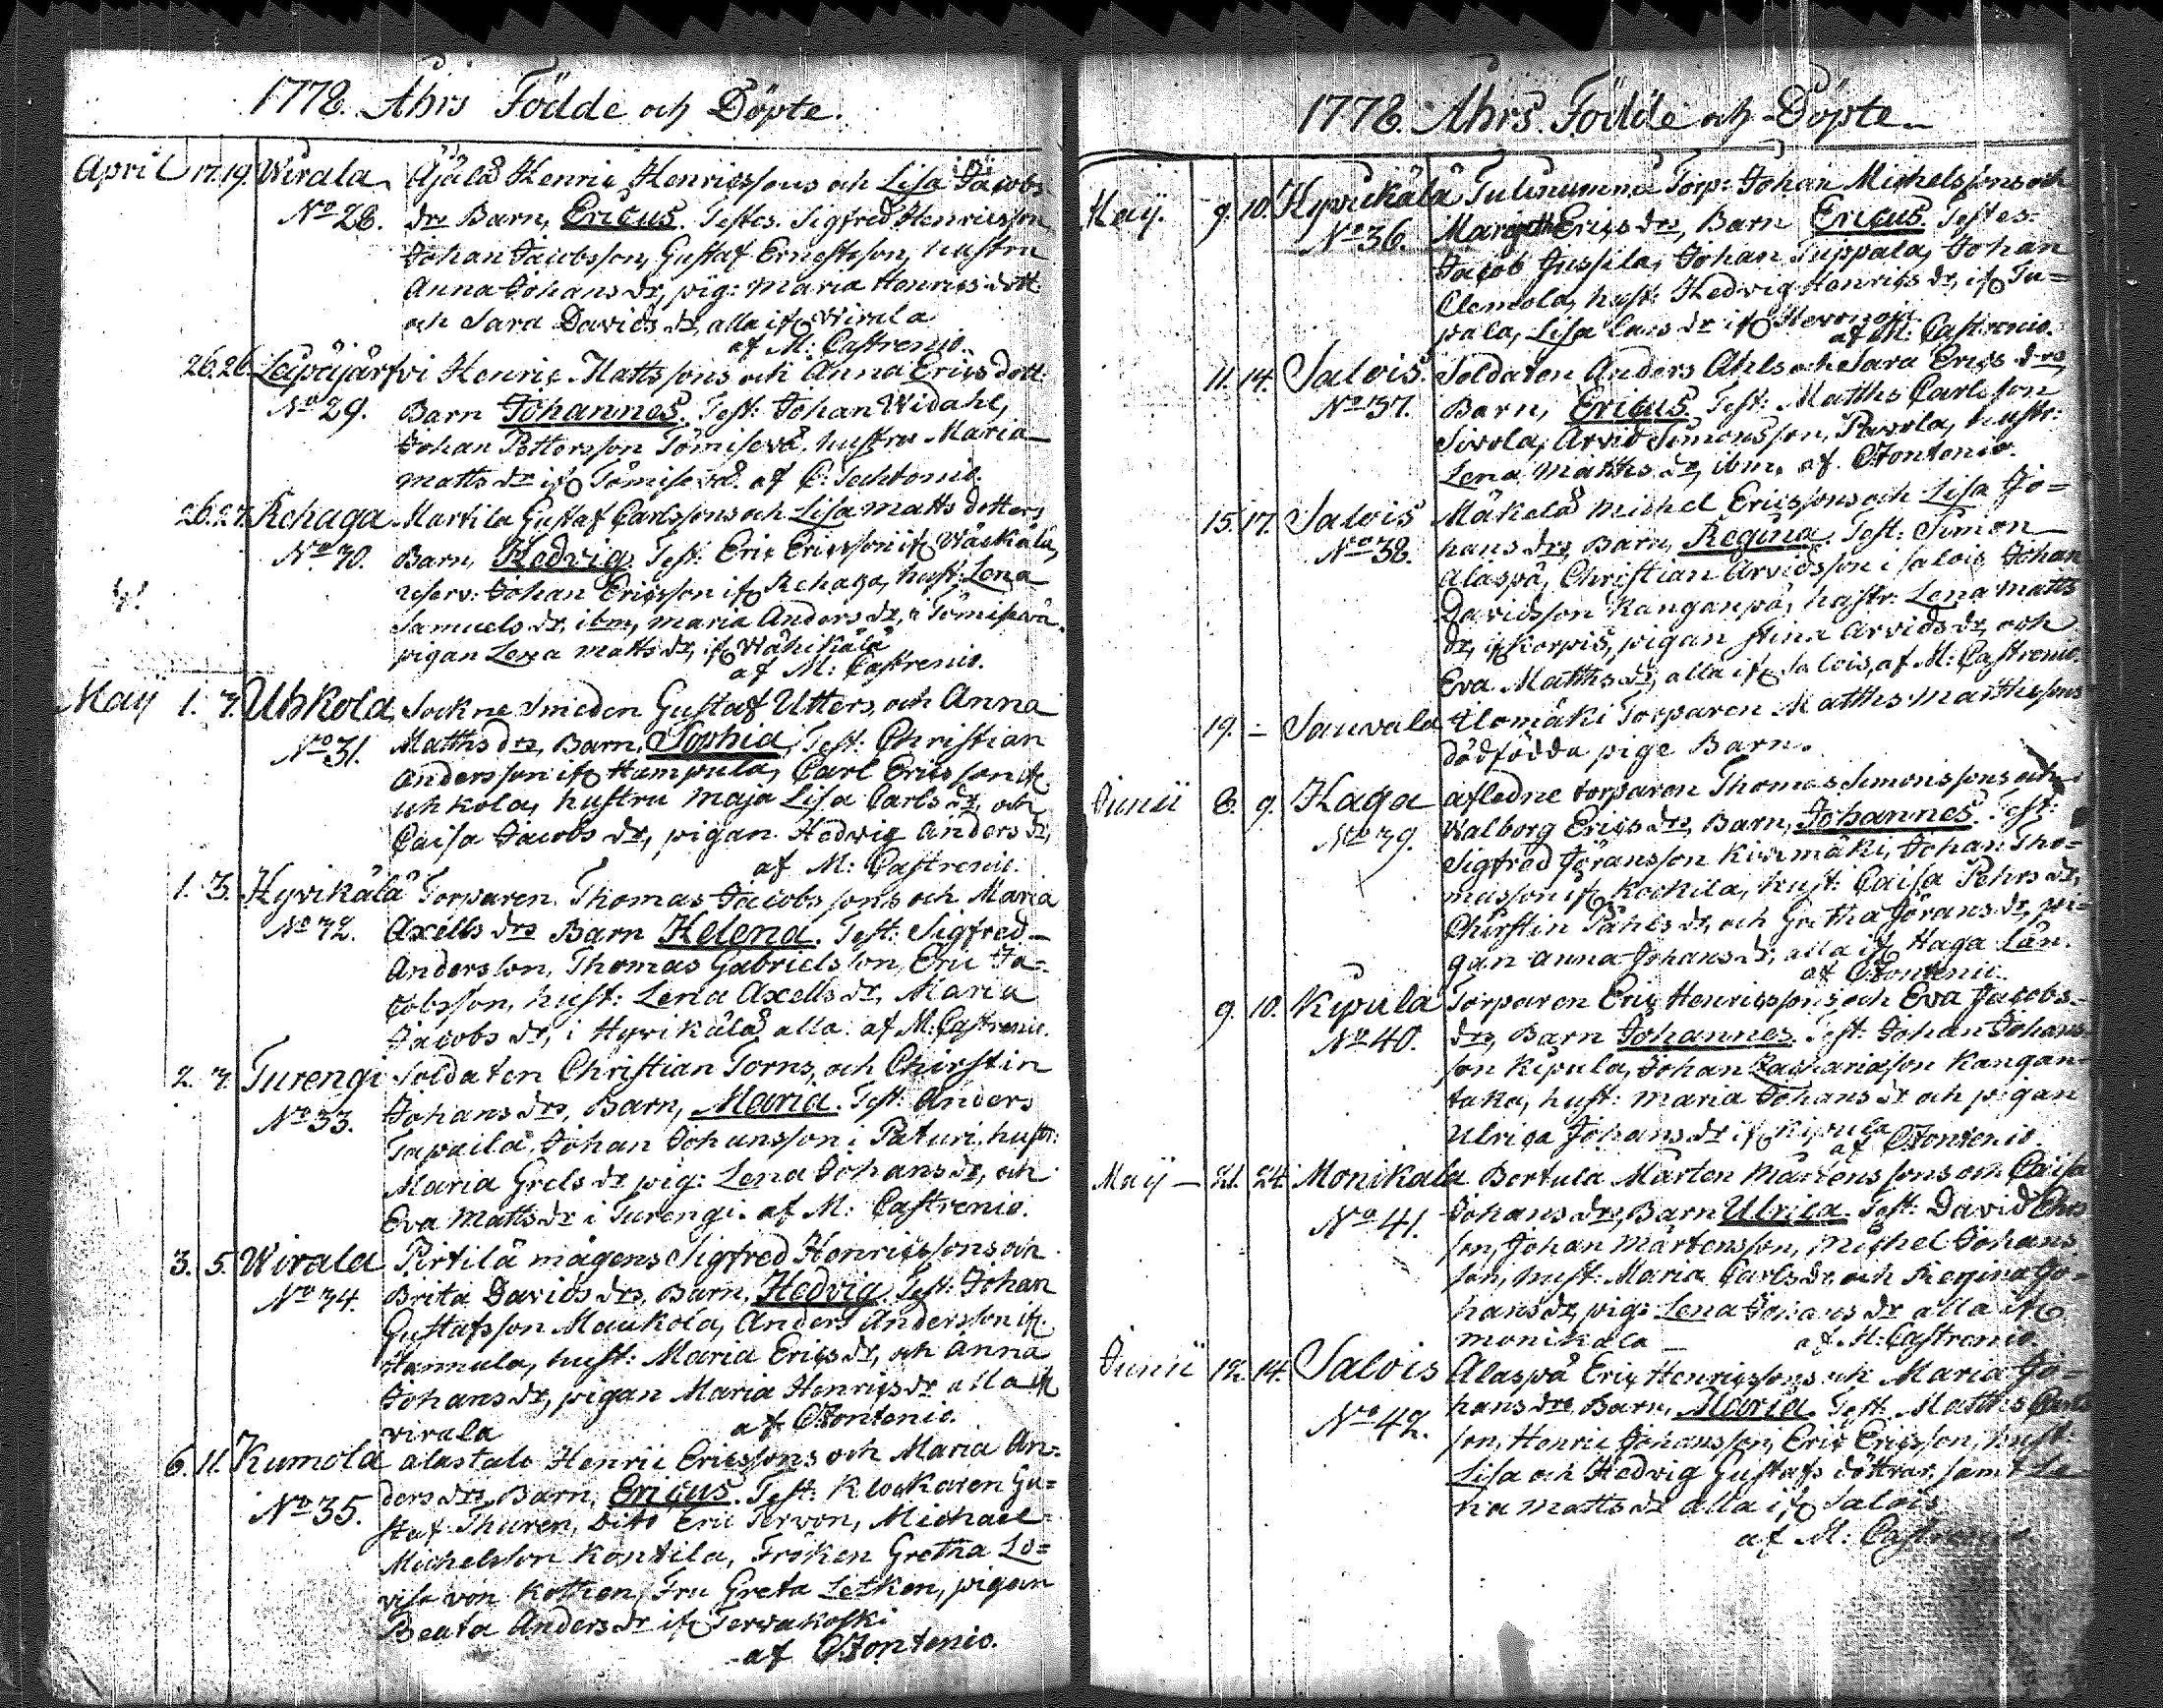 1778. Åhrs Födde och Döpte.
April 17. 19. Wirala Äjälä Henric Henricssons och Lisa Jacobs
No 28. dr Barn, Ericus. Testes. Sigfred Henricsson
Johan Jacobsson, Gustaf Ernestsson, hustru
Anna Johans dr, pig: Maria Henrics dott.
och Sara Davids dr, alla ifr Wirala
af M: Castrenio.
26. 26. Leppäjärfvi Henric Mattssons och Anna Erics dott.
No 29. Barn Johannes. Test: Johan Widahl,
Johan Pettersson Tömisevä, hustru Maria
Matts dr ifr Tömisevä. af C:
26. 27. Rehaga Martila Gustaf Carlssons och Lisa Matts dotters
No 30. Barn, Hedvig. Test: Eric Ericsson ifr
reserv: Johan Ericsson ifr Rehaga, hust: Lena
Samuels dr, ibm, Maria Anders dr, i Tömisevä.
pigan Lena Matts dr, ifr Wähikälä
af M: Castrenio.
Maÿ 1. 3. Uhkola Sockne Smeden Gustaf Utters, och Anna
No 31. Matths drs, Barn, Sophia, Test: Christian
Andersson ifr Hampula, Carl Ericsson ifr
Uhkola, hustru Maja Lisa Carls dr, och
Caisa Jacobs dr, pigan Hedvig Anders dr,
af M: Castrenio.
1. 3. Hyvikälä Torparen Thomas Jacobssons och Maria
No 32. Axells drs Barn Helena. Test: Sigfred
Andersson, Thomas Gabrielsson, Eric Ja-
cobsson, hust: Lena Axells dr, Maria
Jacobs dr, i Hyvikälä alla. af M: Castrenio.
2. 3. Turengi Soldaten Christian Torns, och Chirstin
No 33. Johans drs, Barn, Maria. Test: Anders
Tapaila, Johan Johansson i Paturi, hustr:
Maria Grels dr pig: Lena Johans dr, och
Eva Matts dr i Turengi. af M: Castrenio.
3. 5. Wirala Pirtilä mågens Sigfred Henricssons och
No 34. Brita Davids drs, Barn, Hedvig. Test: Johan
Gustafsson Maukola, Anders Andersson ifr
Hannula, hust: Maria Erics dr, och Anna
Johans dr, pigan Maria Henrics dr alla ifr
virala af CFontenio.
6. 11. Kumola alastalo Henric Ericssons och Maria An-
No 35. ders drs, Barn, Ericus. Test: Klockaren Gu-
staf Thuren, Dito Eric Tervon, Michael
Michelsson Kontila, Fröken Gretha Lo-
visa von Kothen, Fru Greta Letken, pigan
Beata Anders dr ifr Tervakoski
af CFontenio.
1778. Åhrs Födde och Döpte
Maÿ. 9. 10. Hyvikälä Torp: Johan Michelssons och
No 36. Margeth Erics drs, Barn Ericus. Testes:
Jacob Jussila, Johan Tuppala, Johan
Clemola, hust: Hedvig Henrics dr, ifr Tu-
pala, Lisa Lars dr ifr
af M: Castrenio.
11. 14. Salois. Soldaten Anders Ahls och Sara Erics drs
No 37. Barn, Ericus. Test: Matths Carlsson
Sivola, Arvid Simonsson, Pavola, hustr:
Lena Matths dr, ibm. af CFontenio.
15. 17. Salois Mäkelä Michel Ericssons och Lisa Jo-
No 38. hans drs, Barn, Regina. Test: Simon
Alaspä, Christian Arvidsson i salois, Johan
Davidsson Kanganpä, hustr: Lena Matts
dr, ifr Korpis, pigan Stina Arvids dr, och
Eva Matths dr, alla ifr Salois, af M: Castrenio.
19. – Sauvala Ilomäki Torparen Matths Matthssons
dödfödda pige Barn.
Junii 8. 9. Haga afledne torparen Thomas Simonssons och
No 39. Walborg Erics drs, Barn, Johannes. Test:
Sigfred Jöransson Kivimäki, Johan Tho-
masson ifr Kockila, hust: Caisa Pehrs dr,
Chirstin Påhls dr, och Gretha Jörans dr, pi-
gan Anna Johans dr, alla ifr Haga Län.
af CFontenio.
9. 10. Kipula Torparen Eric Henricssons och Eva Jacobs-
No 40. drs, Barn Johannes. Test: Johan Johans-
son Kipula, Johan Zachariasson Kangan-
taka, hust: Maria Johans dr och pigan
Ulrica Johans dr ifr Kipula
af CFontenio.
Maÿ – 21. 24. Monikala Bertula Mårten Mårtenssons och Caisa
No 41. Johans drs, Barn Ulrica. Test: David
son, Johan Mårtensson, Michel Johans
son, hust: Maria Carls dr och Regina Jo-
hans dr, pig: Lena Johans dr alla ifr
monikala – af M: Castrenio.
Junii 12. 14. Salois Alaspä Eric Henricssons och Maria Jo-
No 42. hans drs, Barn, Maria. Test: Matths Carls
son, Henric Johansson, Eric Ericsson, hust:
Lisa och Hedvig Gustafs döttrar, samt Le-
na Matts dr alla ifr Salois
af M: Castrenio